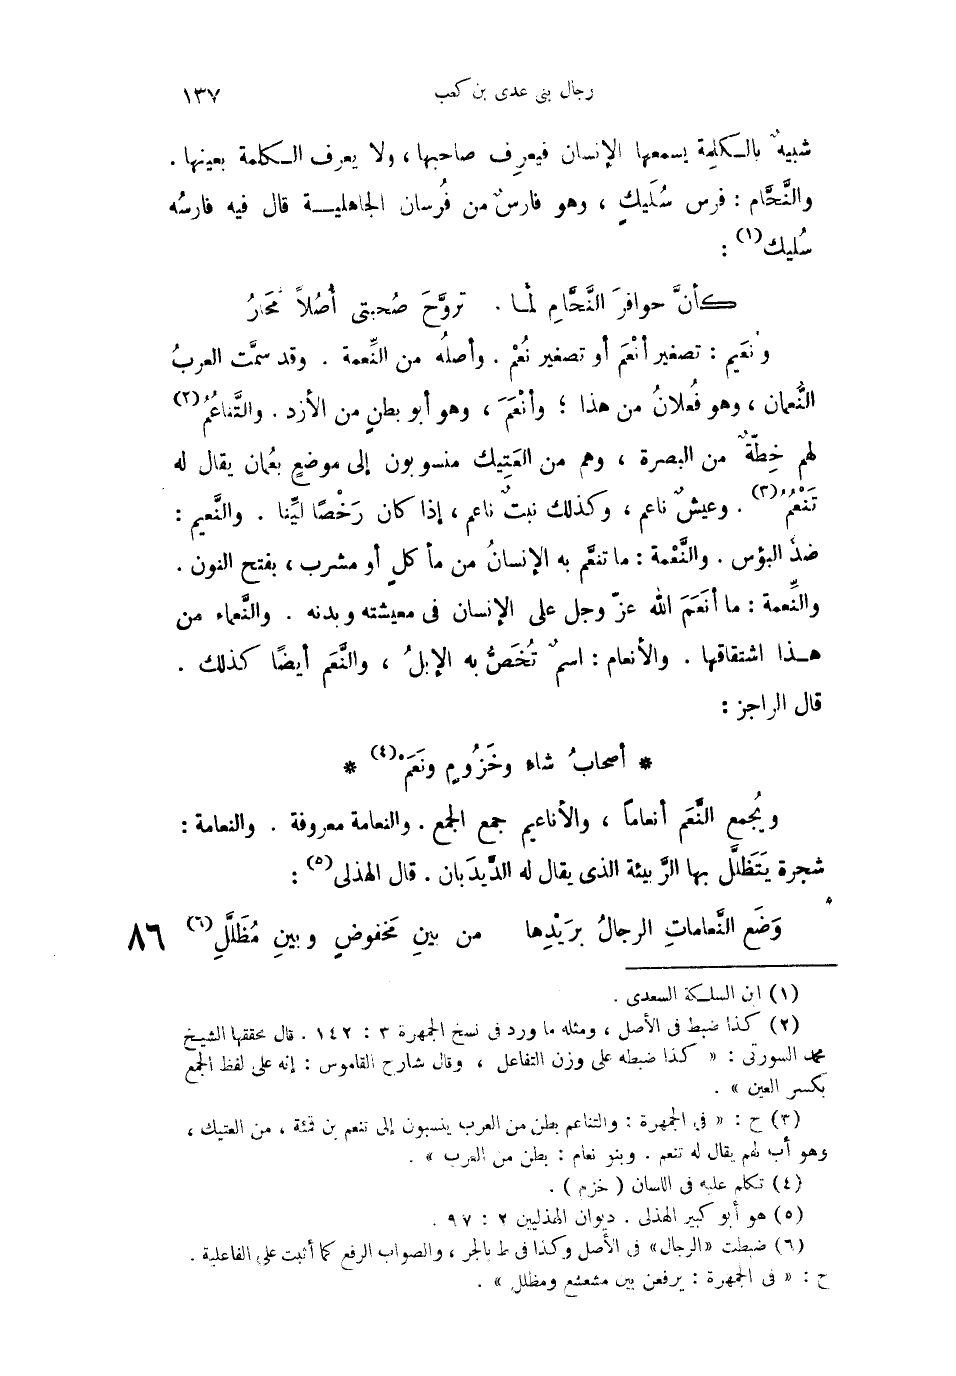 رجال بنى عدى بن كعب ١٣٧
شبيهٌ بالكلِمة يسمعها الإنسان فيعرِف صاحبها، ولا يعرف الكلمة بعينها.
والنَّحَّام: فرس سُلَيكٍ، وهو فارسٌ من فُرسان الجاهلية قال فيه فارسُه
سُليك(١):
كأنَّ حوافرَ النَّحَّامِ لما . تروَّحَ صُحبتى أُصُلاً مَحَارُ
ونُعَيم: تصغير أنْعَمَ أو تصغير نُعْم. وأصلُه من النِّعمة. وقد سمَّت العربُ
النُّعمان، وهو فُعلانُ من هذا؛ وأنْعَمَ، وهو أبو بطنٍ من الأزد. والتَّناعُمُ(٢)
لهم خِطّةٌ من البصرة، وهم من العَتِيك منسوبون إلى موضعٍ بعُمان يقال له
تَنْعُمُ(٣). وعيشٌ ناعم، وكذلك نبتٌ ناعم، إذا كان رَخْصًا ليِّنا. والنَّعيم:
ضدُّ البؤس. والنَّعْمة: ما تنعَّم به الإنسانُ من مأكلٍ أو مشرب، بفتح النون.
والنِّعمة: ما أنَعَمَ الله عزّ وجل على الإنسان فى معيشته وبدنه. والنَّعماء من
هذا اشتقاقها. والأنعام: اسمٌ تُخَصُّ به الإبلُ، والنَّعَم أيضًا كذلك.
قال الراجز:
* أصحابُ شاءٍ وخَزُومٍ ونَعَمْ(٤) *
ويُجمع النَّعَم أنعاماً، والأناعيم جمع الجمع. والنعامة معروفة. والنعامة:
شجرة يَتَظلَّل بها الرَّبيئة الذى يقال له الدَّيدَبان. قال الهذلى(٥):
وَضَع النَّعاماتِ الرجالُ برَيْدِها من بينِ مَخفوضٍ وبينِ مُظَلَّلِ(٦) ٨٦
(١) ابن السلكة السعدى.
(٢) كذا ضبط فى الأصل، ومثله ما ورد فى نسخ الجمهرة ٣: ١٤٢. قال محققها الشيخ
محمد السورتى: «كذا ضبطه على وزن التفاعل، وقال شارح القاموس: إنه على لفظ الجمع
بكسر العين».
(٣) ح: «فى الجمهرة: والتناعم بطن من العرب ينسبون إلى تنعم بن قمئة، من العتيك،
وهو أب لهم يقال له تنعم. وبنو نعام: بطن من العرب».
(٤) تكلم عليه فى اللسان (خزم).
(٥) هو أبو كبير الهذلى. ديوان الهذليين ٢: ٩٧.
(٦) ضبطت «الرجال» فى الأصل وكذا فى ط بالجر، والصواب الرفع كما أثبت على الفاعلية.
ح: «فى الجمهرة: يرفعن بين مشعشع ومظلل».